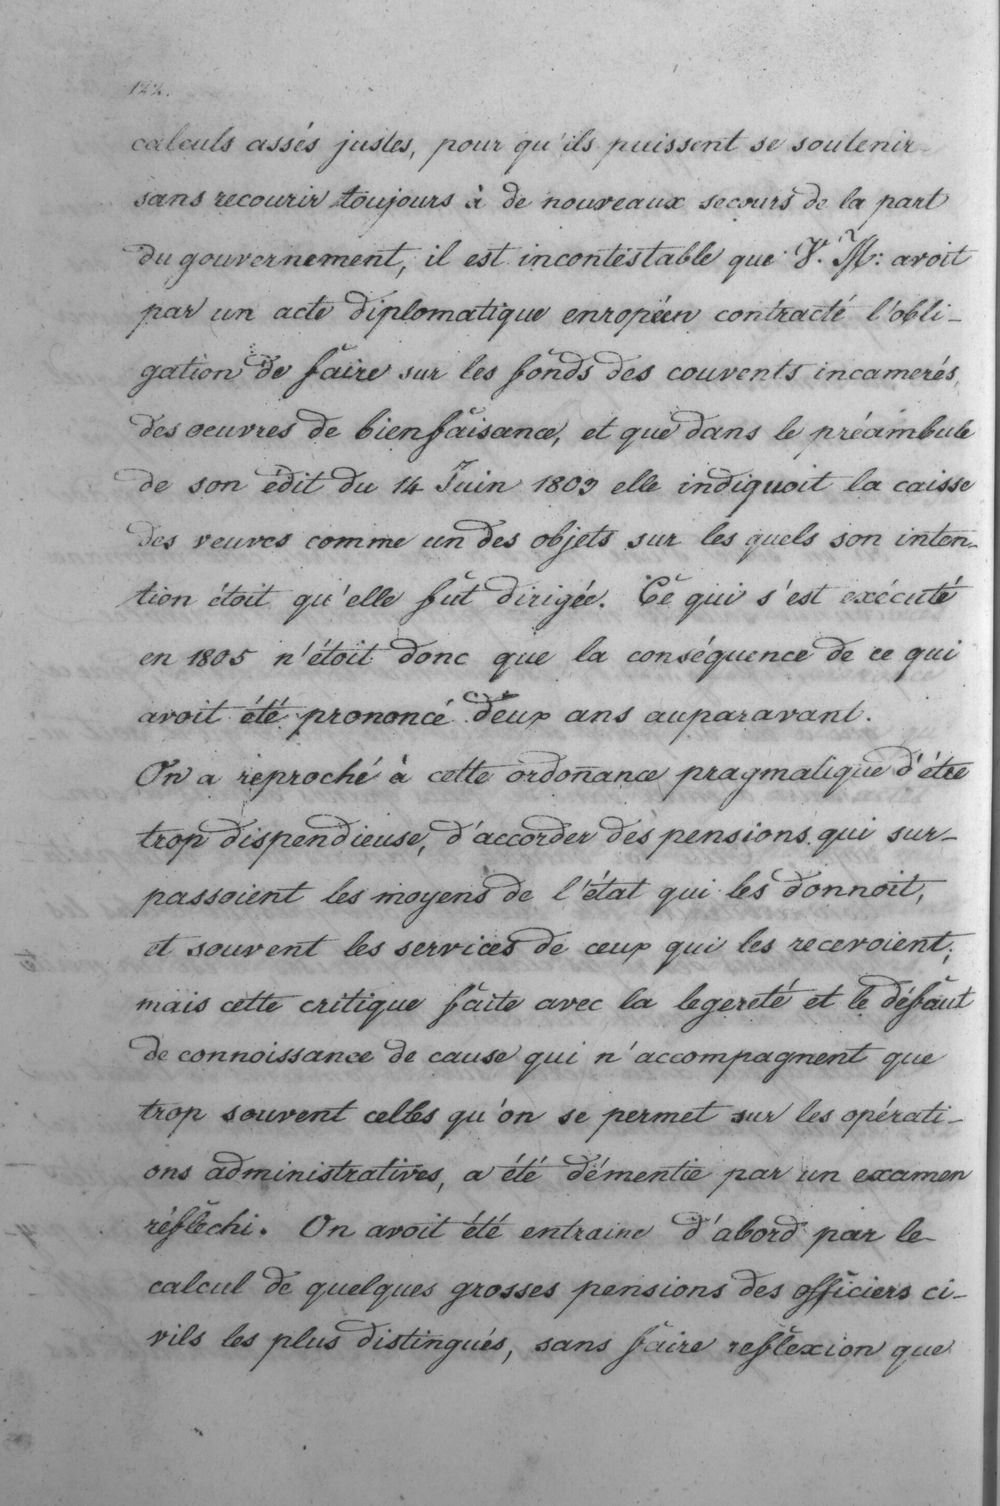 122.
calculs assés justes, pour qu'ils puissent se soutenir
sans recourir toujours à de nouveaux secours de la part
du gouvernement, il est incontestable que V. M: avoit
par un acte diplomatique enropéen contracté l'obli-
gation de faire sur les fonds des couvents incamerés,
des oeuvres de bienfaisance, et que dans le préambule
de son édit du 14 Juin 1803 elle indiquoit la caisse
des veuves comme un des objets sur les quels son inten-
tion étoit qu'elle fut dirigée. Ce qui s'est exécuté
en 1805 n'étoit donc que la conséquence de ce qui
avoit été prononcé deux ans auparavant.
On a reproché à cette ordoñance pragmatique d'étre
trop dispendieuse, d'accorder des pensions qui sur-
passoient les moyens de l'état qui les donnoit,
et souvent les services de ceux qui les recevoient;
mais cette critique faite avec la legereté et le défaut
de connoissance de cause qui n'accompagnent que
trop souvent celles qu'on se permet sur les opérati-
ons administratives, a été démentie par un examen
réflechi. On avoit été entraine d'abord par le
calcul de quelques grosses pensions des officiers ci-
vils les plus distingués, sans faire reflexion que